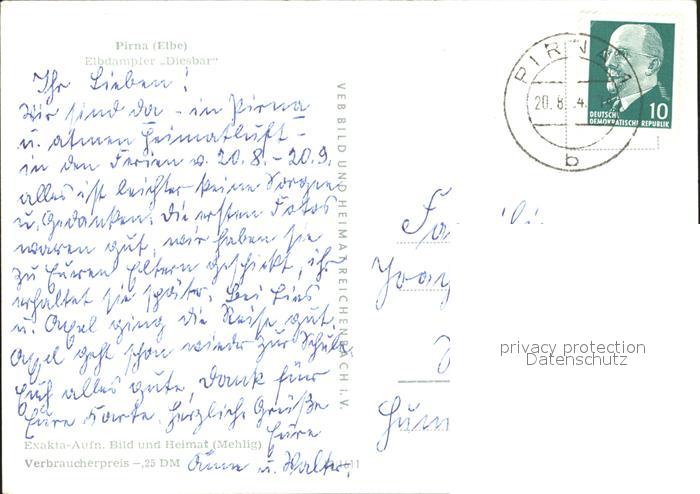 Pirna (Elbe)
Elbdampfer „Diesbar"
Ihr Lieben!
Wir sind da - in Pirna
u. atmen Heimatluft -
in den Ferien v. 20.8. - 20.9.
alles ist leichter keine Sorgen
u. Gedanken. Die ersten Fotos
waren gut, wir haben sie
zu Euren Eltern geschickt, ihr
erhaltet sie später. Bei
u. ging die Reise gut.
geht schon wieder zur Schule.
Euch alles gute, Dank für
Eure Karte. Herzliche Grüße
Eure
Änne u. Walter.
Exakta-Aufn. Bild und Heimat (Mehlig)
Verbraucherpreis -,25 DM
VEB BILD UND HEIMAT REICHENBACH I. V.
PIRNA 1
20.8. 4.
b
10
DEUTSCHE
DEMOKRATISCHE REPUBLIK
Fa
privacy protection
Datenschutz